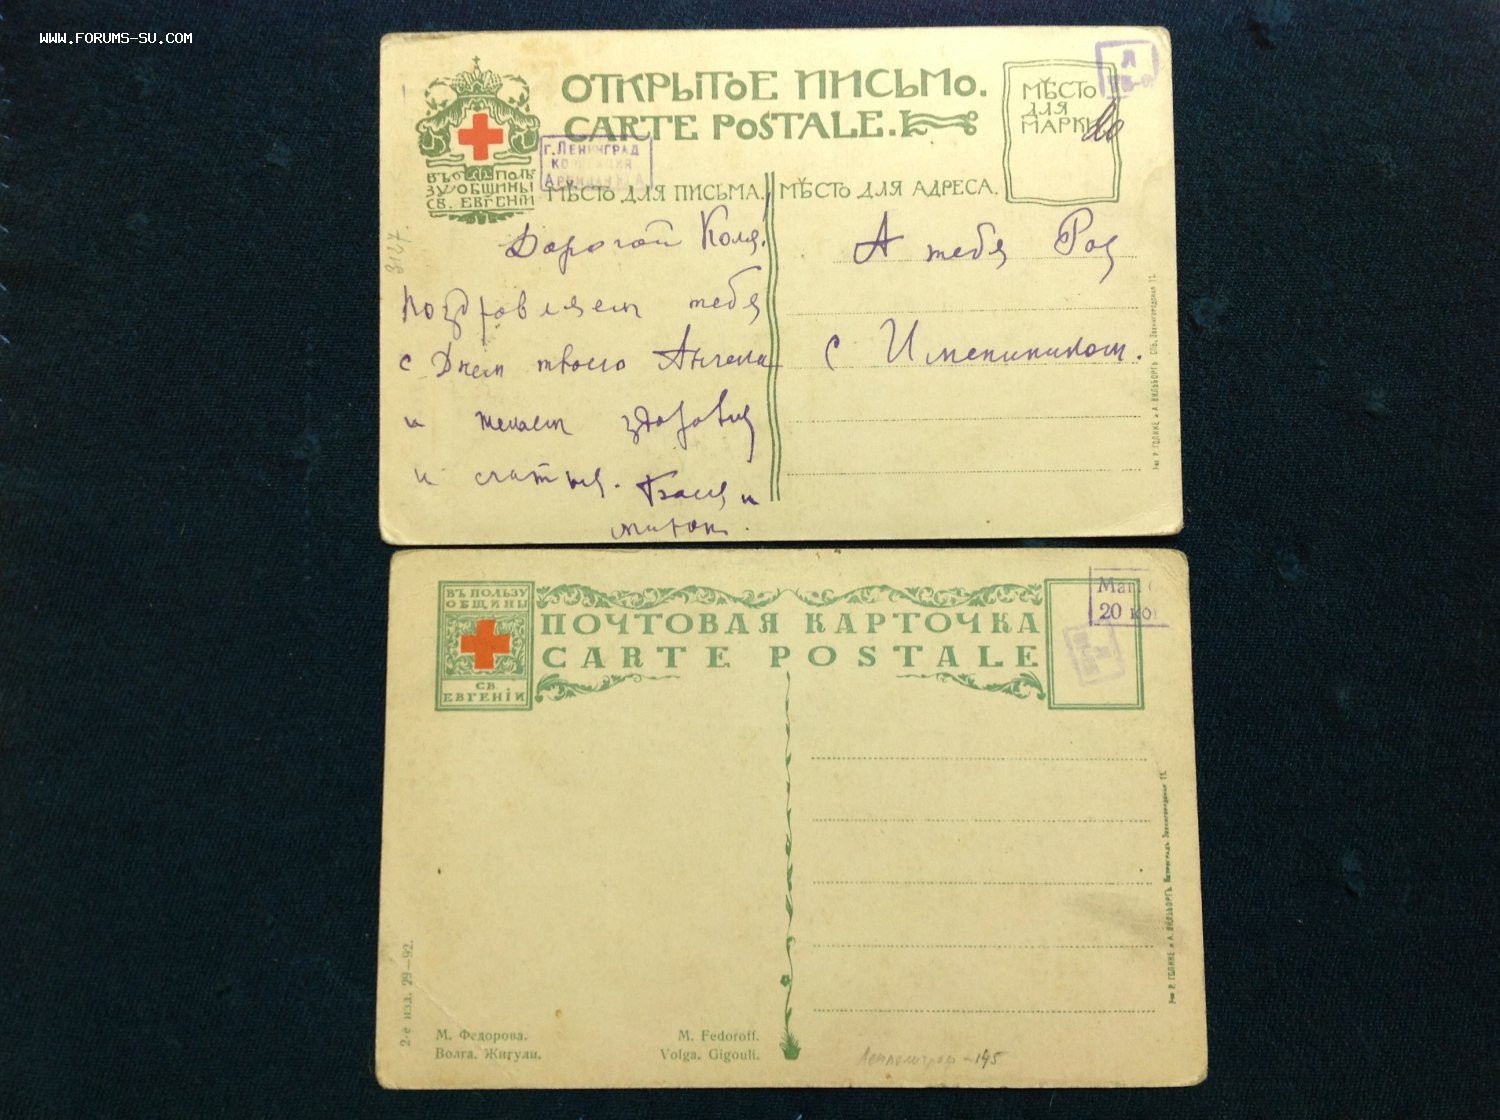 WWW.FORUMS-SU.COM
ОТКРЫТОЕ ПИСЬМО.
CARTE POSTALE.
МѢСТО
ДЛЯ
МАРКИ
ПОЛЬ
ЗУ ОБЩИНЫ
СВ. ЕВГЕНІИ
г. ЛЕНИНГРАД
МѢСТО ДЛЯ ПИСЬМА.
МѢСТО ДЛЯ АДРЕСА.
3127.
Дорогой Коля!
Поздравляем тебя
с Днем твоего Ангела
и желаем здоровья
и счастья.
А тебя
С Именинником.
Р. ГОЛИКЕ и А. ВИЛЬБОРГЪ. СПБ. Звенигородская 11.
ВЪ ПОЛЬЗУ
ОБЩИНЫ
СВ.
ЕВГЕНІИ
ПОЧТОВАЯ КАРТОЧКА
CARTE POSTALE
20 ко
2-е изд. 29—92.
М. Федорова.
Волга. Жигули.
M. Fedoroff.
Volga. Gigouli.
Р. ГОЛИКЕ и А. ВИЛЬБОРГЪ. Петроградъ. Звенигородская 11.